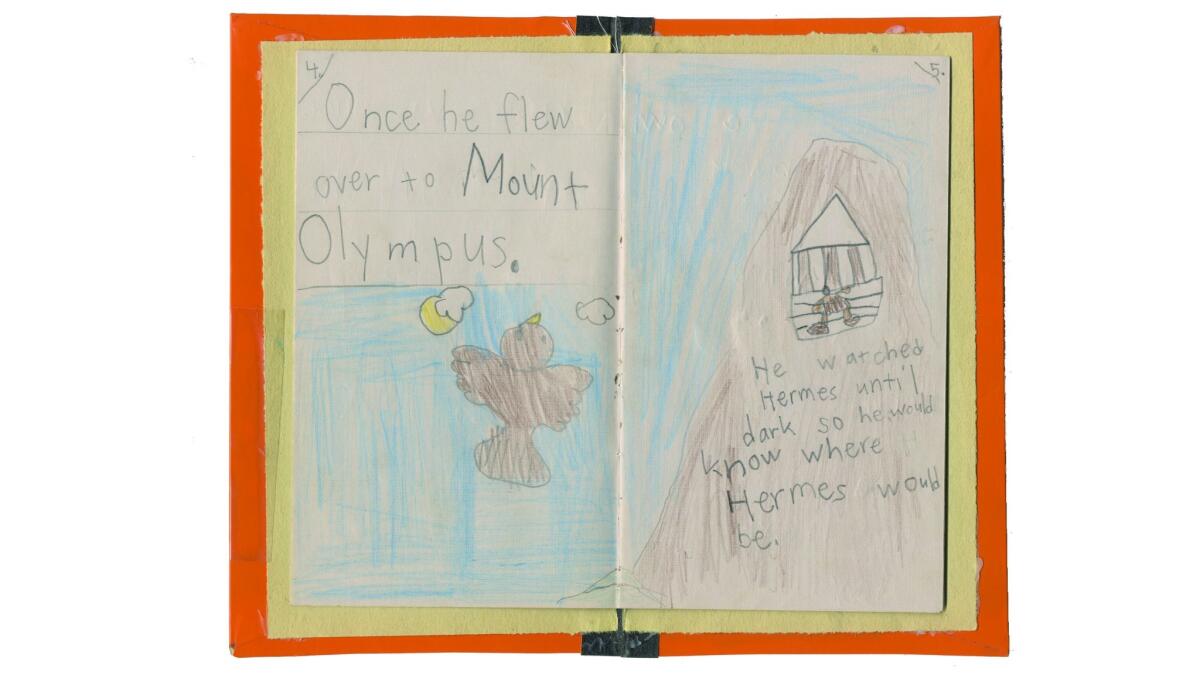 4.
Once he flew
over to Mount
Olympus.
5.
He watched
Hermes until
dark so he would
know where
Hermes would
be.